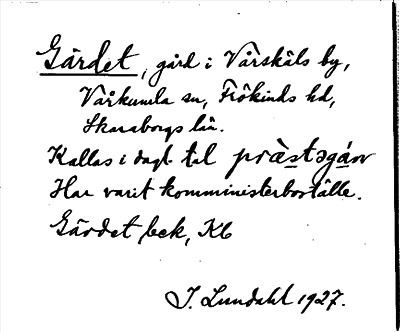 Gärdet, gård i Vårskäls by,
Vårkumla sn, Frökinds hd,
Skaraborgs län.
Kallas i dagl. tal prästəgáɷ
Har varit komministerboställe.
Gärdet beck, Kb
I. Lundahl 1927.